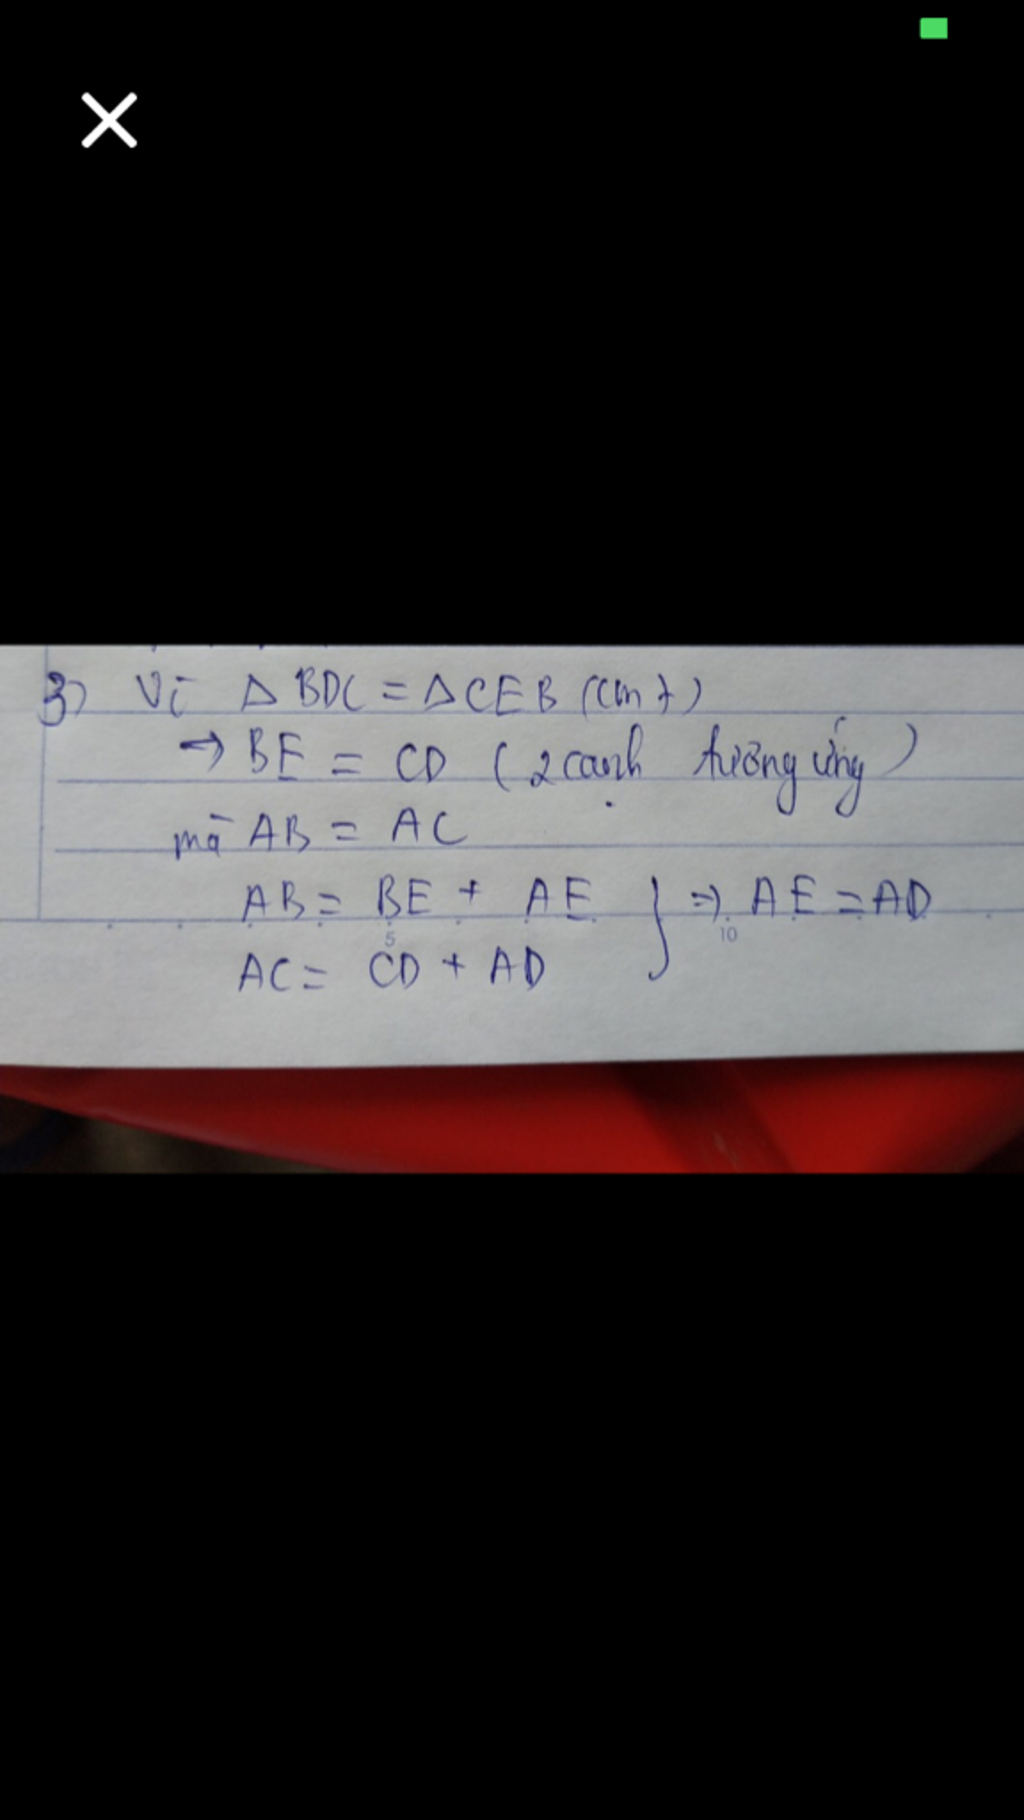 3) Vì Δ BDC = Δ CEB (cmt)
→ BE = CD (2 cạnh tương ứng)
mà AB = AC
AB = BE + AE } => AE = AD
5 10
AC = CD + AD